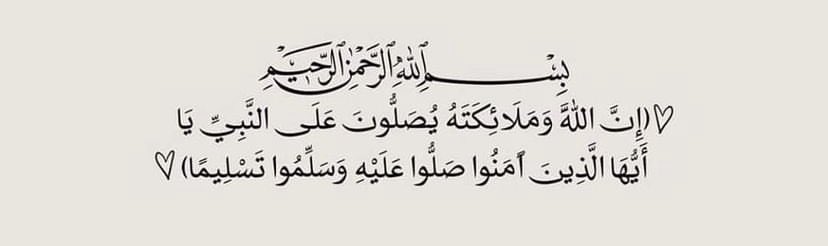 بِسْمِ اللهِ الرَّحْمٰنِ الرَّحِيمِ
♡(إِنَّ اللهَ وَمَلَائِكَتَهُ يُصَلُّونَ عَلَى النَّبِيِّ يَا
أَيُّهَا الَّذِينَ آمَنُوا صَلُّوا عَلَيْهِ وَسَلِّمُوا تَسْلِيمًا)♡